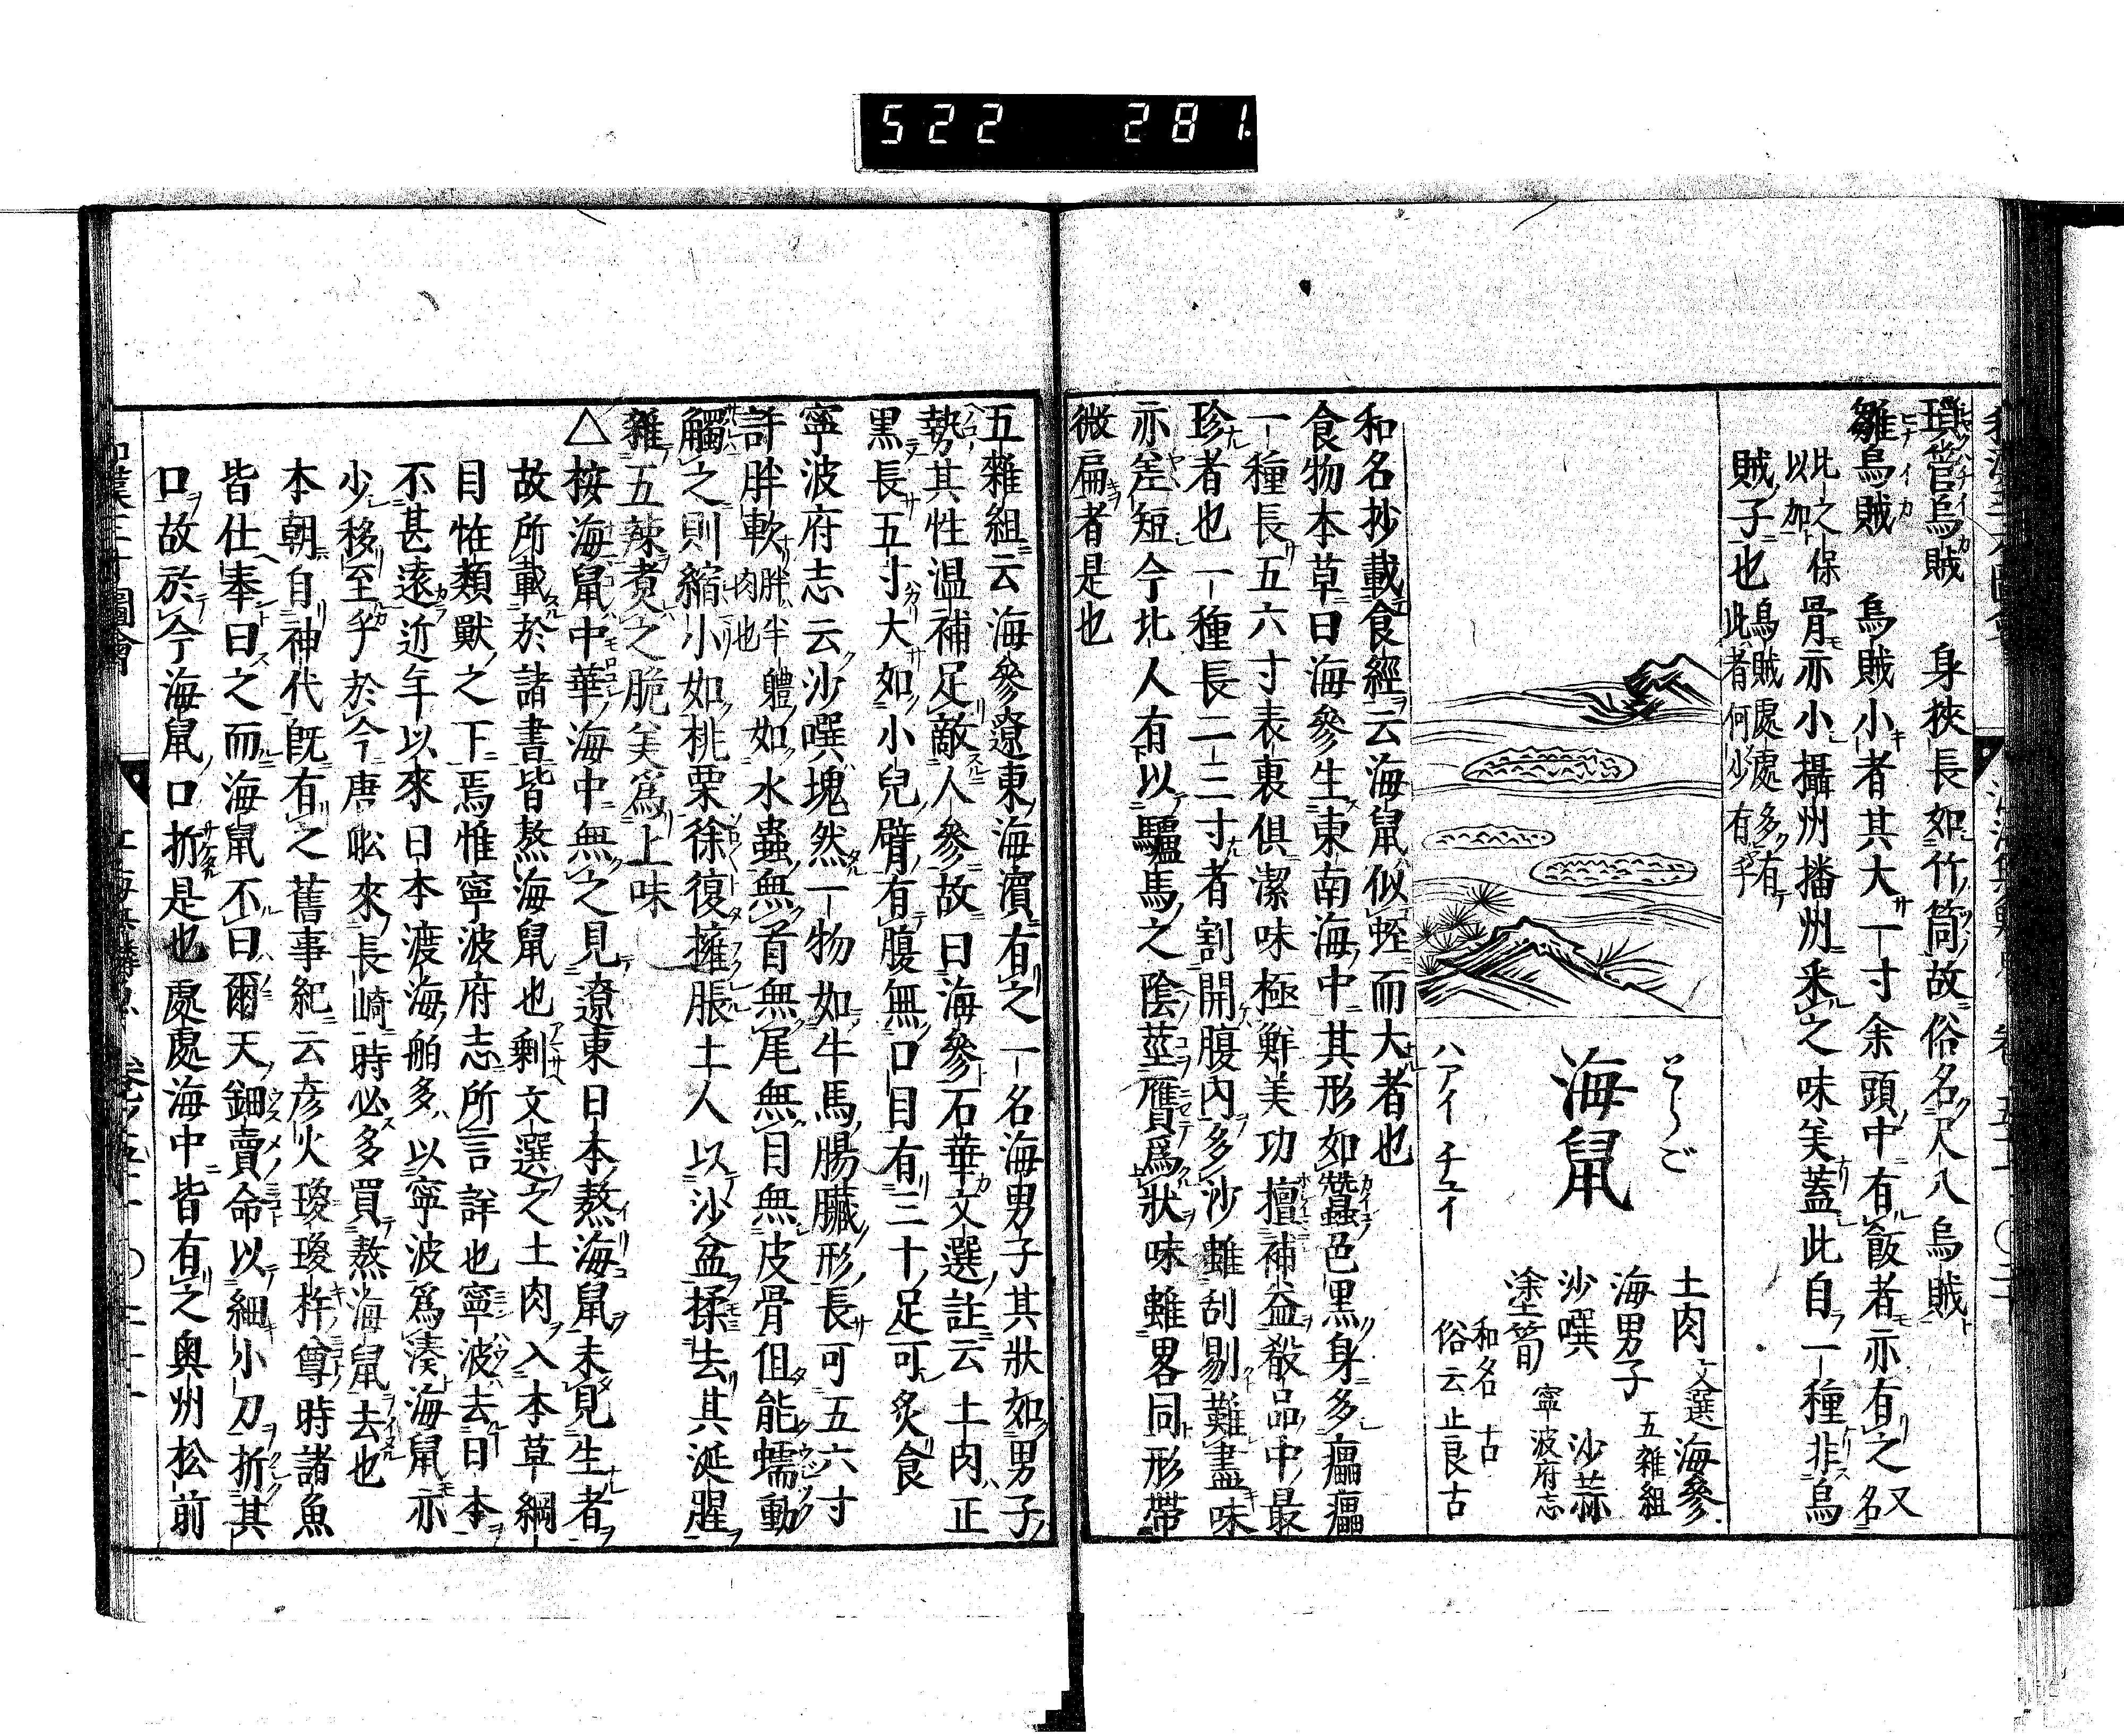 522 281
瑣管烏賊 身狹長如竹筒故俗名尺八烏賊
雛烏賊 烏賊小者其大一寸余頭中有飯者亦有之又名
比之保骨亦小攝州播州采之味美蓋此自一種非烏
以加
賊子也烏賊處處多有
此者何少有乎
海鼠
とらご
ハアイ チユイ
土肉文選 海參
海男子 五雜組
沙噀 沙蒜
塗筍 寧波府志
和名 古
俗云止良古
和名抄載食經云海鼠似蛭而大者也
食物本草曰海參生東南海中其形如蠶色黒身多瘟瘟
一種長五六寸表裏俱潔味極鮮美功擅補益殽品中最
珍者也一種長二三寸者割開腹內多沙雖刮剔難盡味
亦差短今北人有以驢馬之陰莖贋爲狀味雖畧同形帶
微扁者是也
五雜組云海參遼東海濱有之一名海男子其狀如男子
勢其性温補足敵人參故曰海參石華文選註云土肉正
黒長五寸大如小兒臂有腹無口目有三十足可炙食
寧波府志云沙噀塊然一物如牛馬腸臓形長可五六寸
許胖軟胖半體
肉也
如水蟲無首無尾無目無皮骨但能蠕動
觸之則縮小如桃栗徐復擁脹土人以沙盆揉去其涎腥
雜五辣煑之脆美爲上味
△按海鼠中華海中無之見遼東日本熬海鼠未見生者
故所載於諸書皆熬海鼠也剩文選之土肉入本草綱
目恠類獸之下焉惟寧波府志所言詳也寧波去日本
不甚遠近年以來日本渡海舶多以寧波爲湊海鼠亦
少移至乎於今唐舩來長崎時必多買熬海鼠去也
本朝自神代既有之舊事紀云彦火瓊瓊杵尊時諸魚
皆仕奉曰之而海鼠不曰爾天鈿賣命以細小刀折其
口故於今海鼠口折是也處處海中皆有之奥州松前